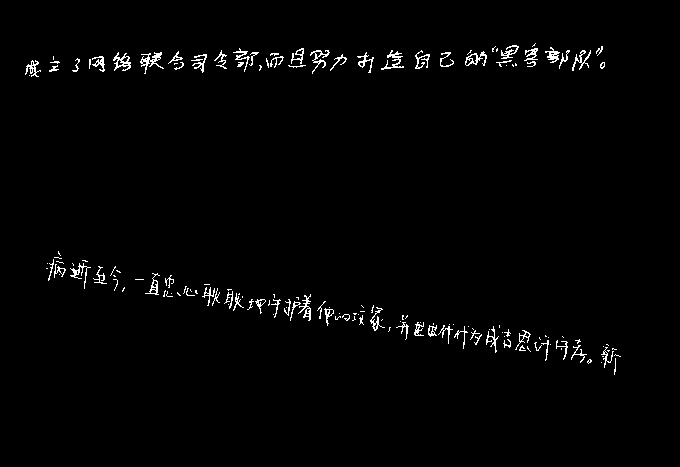 成立了网络联合司令部,而且努力打造自己的“黑客部队”。
病逝至今,一直忠心耿耿地守护着他的坟冢,并世世代代为成吉思汗守孝。新